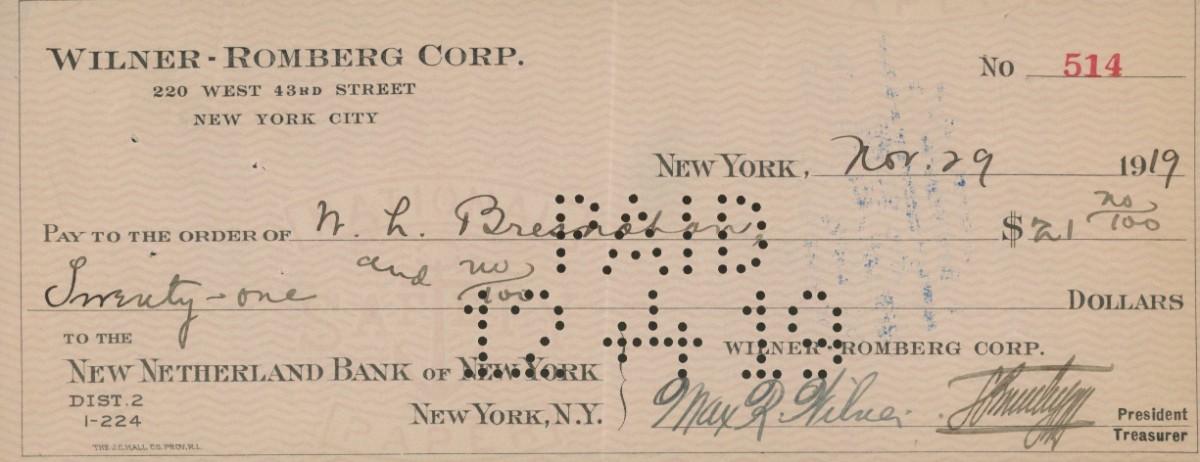 WILNER-ROMBERG CORP.
220 WEST 43RD STREET
NEW YORK CITY
No 514
NEW YORK, Nov. 29 1919
PAY TO THE ORDER OF W. L. Bresnahan, $21 no/100
Twenty-one and no/100 DOLLARS
PAID
12 4 19
TO THE
NEW NETHERLAND BANK OF NEW YORK
NEW YORK, N.Y.
DIST. 2
1-224
WILNER-ROMBERG CORP.
Max R. Wilner
President
Treasurer
THE J.C. HALL CO. PROV., R.I.